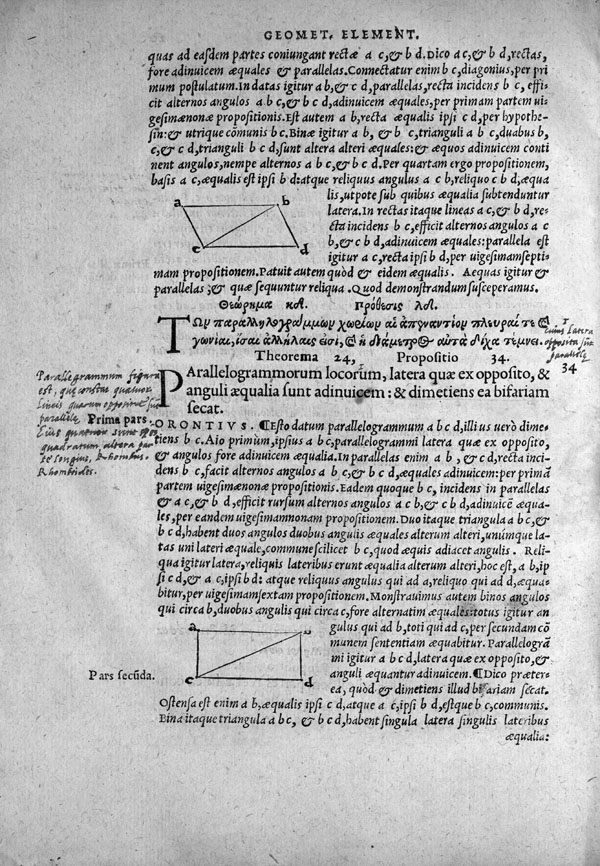 GEOMET. ELEMENT.
quas ad easdem partes coniungant rectæ a c,& b d. Dico a c,& b d,rectas,
fore adinuicem æquales & parallelas. Connectatur enim b c,diagonius, per pri
mum postulatum. In datas igitur a b,& c d,parallelas, recta incidens b c, effi-
cit alternos angulos a b c,& b c d,adinuicem æquales, per primam partem ui-
gesimænonæ propositionis. Est autem a b,recta æqualis ipsi c d,per hypothe-
sin:& utrique cõmunis b c. Binæ igitur a b, & b c, trianguli a b c, duabus b c,
c d, trianguli b c d, sunt altera alteri æquales: & æquos adinuicem conti
nent angulos, nempe alternos a b c,& b c d. Per quartam ergo propositionem,
basis a c,æqualis est ipsi b d: atque reliquus angulus a c b,reliquo c b d,æqua
lis,utpote sub quibus æqualia subtenduntur
latera. In rectas itaque lineas a c,& b d,re-
cta incidens b c,efficit alternos angulos a c
b,& c b d, adinuicem æquales: parallela est
igitur a c,recta ipsi b d, per uigesimamsepti-
mam propositionem. Patuit autem quòd & eidem æqualis. Aequas igitur &
parallelas ;& quæ sequuntur reliqua. Quod demonstrandum susceperamus.
a b
c d
Θεώρημα κδ. Πρόθεσις λδ.
Τῶν παραλληλογράμμων χωρίων αἱ ἀπεναντίον πλευραί τε &
γωνίαι, ἴσαι ἀλλήλαις εἰσί, & ἡ διάμετρος αὐτὰ δίχα τέμνει.
cuius latera
opposita sunt
parallela
34
Theorema 24, Propositio 34.
PArallelogrammorum locorum, latera quæ ex opposito, &
anguli æqualia sunt adinuicem: & dimetiens ea bifariam
secat.
Parallegrammum figura
est, quæ constat quatuor
lineis quarum oppositæ sunt
parallelæ
Prima pars.
Eius quatuor sunt
quadratum altera par
te longius, Rhombus.
Rhomboides.
ORONTIVS. ¶Esto datum parallelogrammum a b c d,illius uerò dime-
tiens b c. Aio primùm, ipsius a b c,parallelogrammi latera quæ ex opposito,
& angulos fore adinuicem æqualia. In parallelas enim a b ,& c d,recta inci-
dens b c,facit alternos angulos a b c,& b c d,æquales adinuicem: per primã
partem uigesimænonæ propositionis. Eadem quoque b c, incidens in parallelas
& a c,& b d,efficit rursum alternos angulos a c b,& c b d,adinuicẽ æqua-
les, per eandem uigesimamnonam propositionem. Duo itaque triangula a b c,&
b c d,habent duos angulos duobus angulis æquales alterum alteri, unúmque la-
tus uni lateri æquale, commune scilicet b c, quod æquis adiacet angulis. Reli-
qua igitur latera, reliquis lateribus erunt æqualia alterum alteri, hoc est, a b, ip
si c d,& a c,ipsi b d: atque reliquus angulus qui ad a,reliquo qui ad d,æqua-
bitur,per uigesimamsextam propositionem. Monstrauimus autem binos angulos
qui circa b,duobus angulis qui circa c,fore alternatim æquales: totus igitur an
gulus qui ad b, toti qui ad c,per secundam cõ
munem sententiam æquabitur. Parallelogrã
mi igitur a b c d,latera quæ ex opposito,&
anguli æquantur adinuicem. ¶Dico præter-
ea, quòd & dimetiens illud bifariam secat.
a b
c d
Pars secũda.
Ostensa est enim a b,æqualis ipsi c d,atque a c,ipsi b d,estque b c,communis.
Bina itaque triangula a b c, & b c d,habent singula latera singulis lateribus
æqualia: